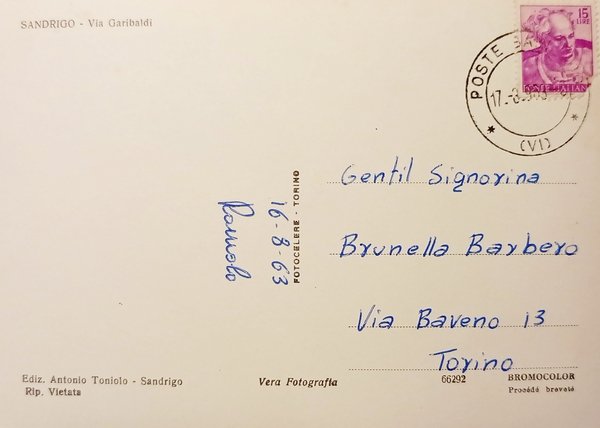 SANDRIGO - Via Garibaldi
15
LIRE
POSTE ITALIANE
POSTE
17.-8.
(VI)
Gentil Signorina
Brunella Barbero
Via Baveno 13
Torino
16-8-63
Romolo
FOTOCELERE - TORINO
Ediz. Antonio Toniolo - Sandrigo
Rip. Vietata
Vera Fotografia
66292
BROMOCOLOR
Procédé breveté